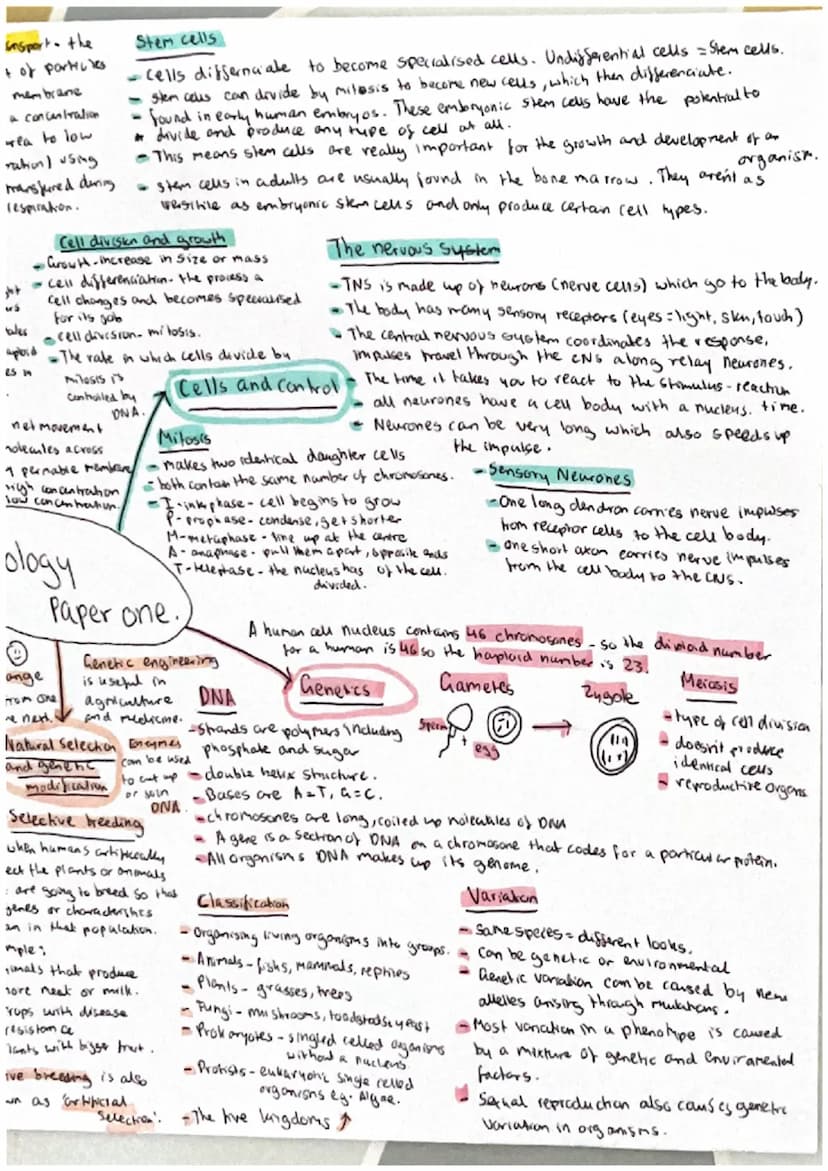 ansport - the
t of particles
membrane
a concentration
rea to low
ration) using
transfered during
respiration.
Stem cells
- Cells differnciate to become specialised cells. Undifferential cells = Stem cells.
- stem cells can divide by mitosis to become new cells, which then differenciate.
- found in early human embryos. These embryonic stem cells have the potential to
divide and produce any type of cell at all.
- This means stem cells are really important for the growth and development of an
organism.
- stem cells in adults are usually found in the bone marrow. They aren't as
versitile as embryonic stem cells and only produce certain cell types.
Cell division and growth
- Growth - increase in size or mass
- cell differenciation - the process a
cell changes and becomes specialised
for its job
- cell division - mitosis.
- The rate in which cells divide by
mitosis is
controlled by
DNA.
The nervous system
- TNS is made up of neurons (nerve cells) which go to the body.
- The body has many sensory receptors (eyes = light, skin, touch)
- The central nervous system coordinates the response,
impulses travel through the CNS along relay neurones.
- The time it takes you to react to the stimulus - reaction
time.
- all neurones have a cell body with a nucleus.
- Neurones can be very long which also speeds up
the impulse.
Cells and control
net movement
molecules across
permable membrane
high concentration
low concentration.
Mitosis
- makes two identical daughter cells
- both contain the same number of chromosomes.
- I - interphase - cell begins to grow
P - prophase - condense, get shorter
M - metaphase - line up at the centre
A - anaphase - pull them apart, opposite ends
of the cell.
T - teleptase - the nucleus has
divided.
- Sensory Neurones
- One long dendron carries nerve impulses
from receptor cells to the cell body.
- one short axon carries nerve impulses
from the cell body to the CNS.
ology
Paper one.
A human cell nucleus contains 46 chromosones - so the diploid number
for a human is 46 so the haploid number is 23.
Genetics
ange
from one
next.
Genetic engineering
is useful in
agriculture
and medicine.
Natural selection
and genetic
modification
Enzymes
can be used
to cut up
or join
DNA.
DNA
- strands are polymers including
phosphate and sugar
- double helix structure.
- Bases are A=T, G=C.
- chromosones are long, coiled up molecules of DNA
- A gene is a section of DNA on a chromosone that codes for a particular protein.
- All organisms DNA makes up its genome.
Gametes
sperm
+ egg
Zygote
Meiosis
- type of cell division
- doesn't produce
identical cells
- reproductive organs
Selective breeding
when humans artifically
ect the plants or animals
are going to breed so that
genes or characteristics
an in that population.
mple:
imals that produce
more meat or milk.
rops with disease
resistance
lants with bigger fruit.
ive breeding is also
wn as 'artificial
selection'.
Classification
- Organising living organisms into groups.
- Animals - fishs, mammals, reptiles
- Plants - grasses, trees
- Fungi - mushrooms, toadstools, yeast
- Prokaryotes - singled celled organisms
without a nucleus.
- Protists - eukaryotic single celled
organisms eg. Algae.
- The five kingdoms ↑
Variation
- Same species = different looks.
- Can be genetic or environmental
- Genetic variation can be caused by new
alleles arising through mutations.
- Most variation in a phenotype is caused
by a mixture of genetic and enviromental
factors.
- Sexual reproduction also causes genetic
variation in organisms.